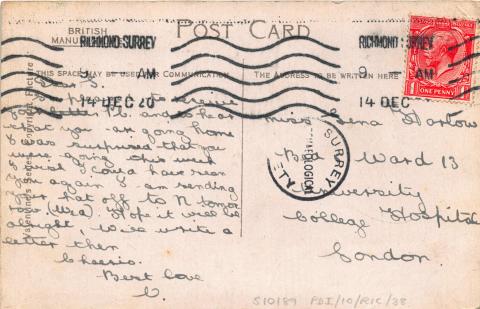 POST CARD
BRITISH
MANU
RICHMOND SURREY
9 AM
14 DEC 20
RICHMOND SURREY
9 AM
14 DEC
ONE PENNY
THIS SPACE MAY BE USED FOR COMMUNICATION
THE ADDRESS TO BE WRITTEN HERE
Valentine's Series
Dear
to receive
and to hear
that you are going home
I was surprised that you
were going this week
I could have seen
you again I am sending
your hat off to N tomor
row (Wed) Hope it will be
alright, Will write a
letter then
Cheerio.
Best love
Miss Lena Barlow
Ward 13
University
College Hospital
London.
SURREY
S10189 PDI/10/RIC/38